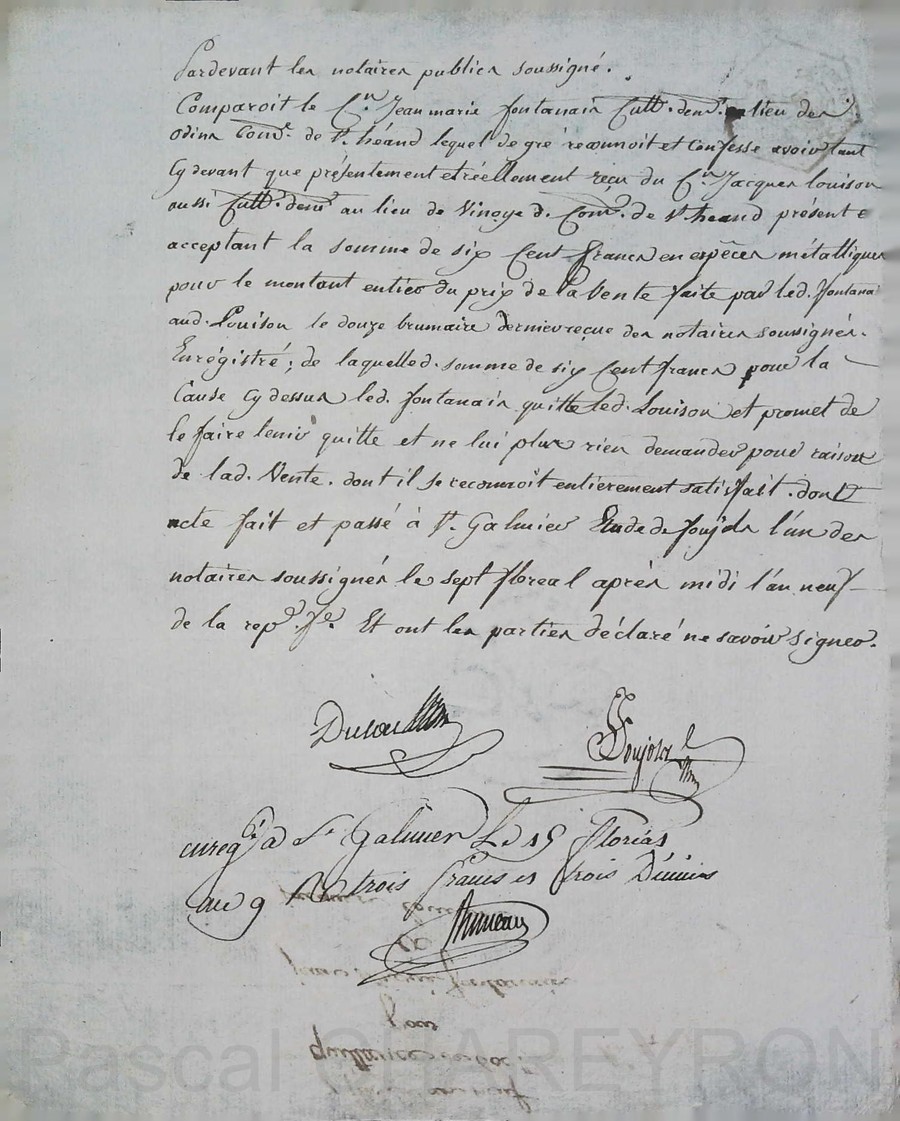 Pardevant les notaires publics soussigné.
Comparoit le C.n Jean marie fontanais Cult. dem.t au lieu des
Odins Com.e de S.t héand lequel de gré reconnoit et Confesse avoir tant
Cy devant que présentement et réellement reçu du C.n Jacques Louison
aussi Cult. dem.t au lieu de Com.e de S.t heand présent e
acceptant la somme de six Cent francs en espèces métalliques
pour le montant entier du prix de la Vente faite par led. fontanai
aud. Louison le douze brumaire dernier reçue des notaires soussignés.
Enrégistré ; de laquelled. somme de six Cent francs pour la
Cause Cy dessus led. fontanais quitte led. Louison et promet de
le faire tenir quitte et ne lui plus rien demander pour raison
de lad. Vente. dont il se reconnoit entièrement satisfait. dont
acte fait et passé à S.t Galmier Etude de foujols l'un des
notaires soussignés le sept floreal après midi l'an neuf
de la rep.e f.e Et ont les parties déclaré ne savoir signer.
foujols
enreg.é a S.t Galmier Le 15 floréal
an 9 trois francs et trois Décimes
Pascal CHAREYRON